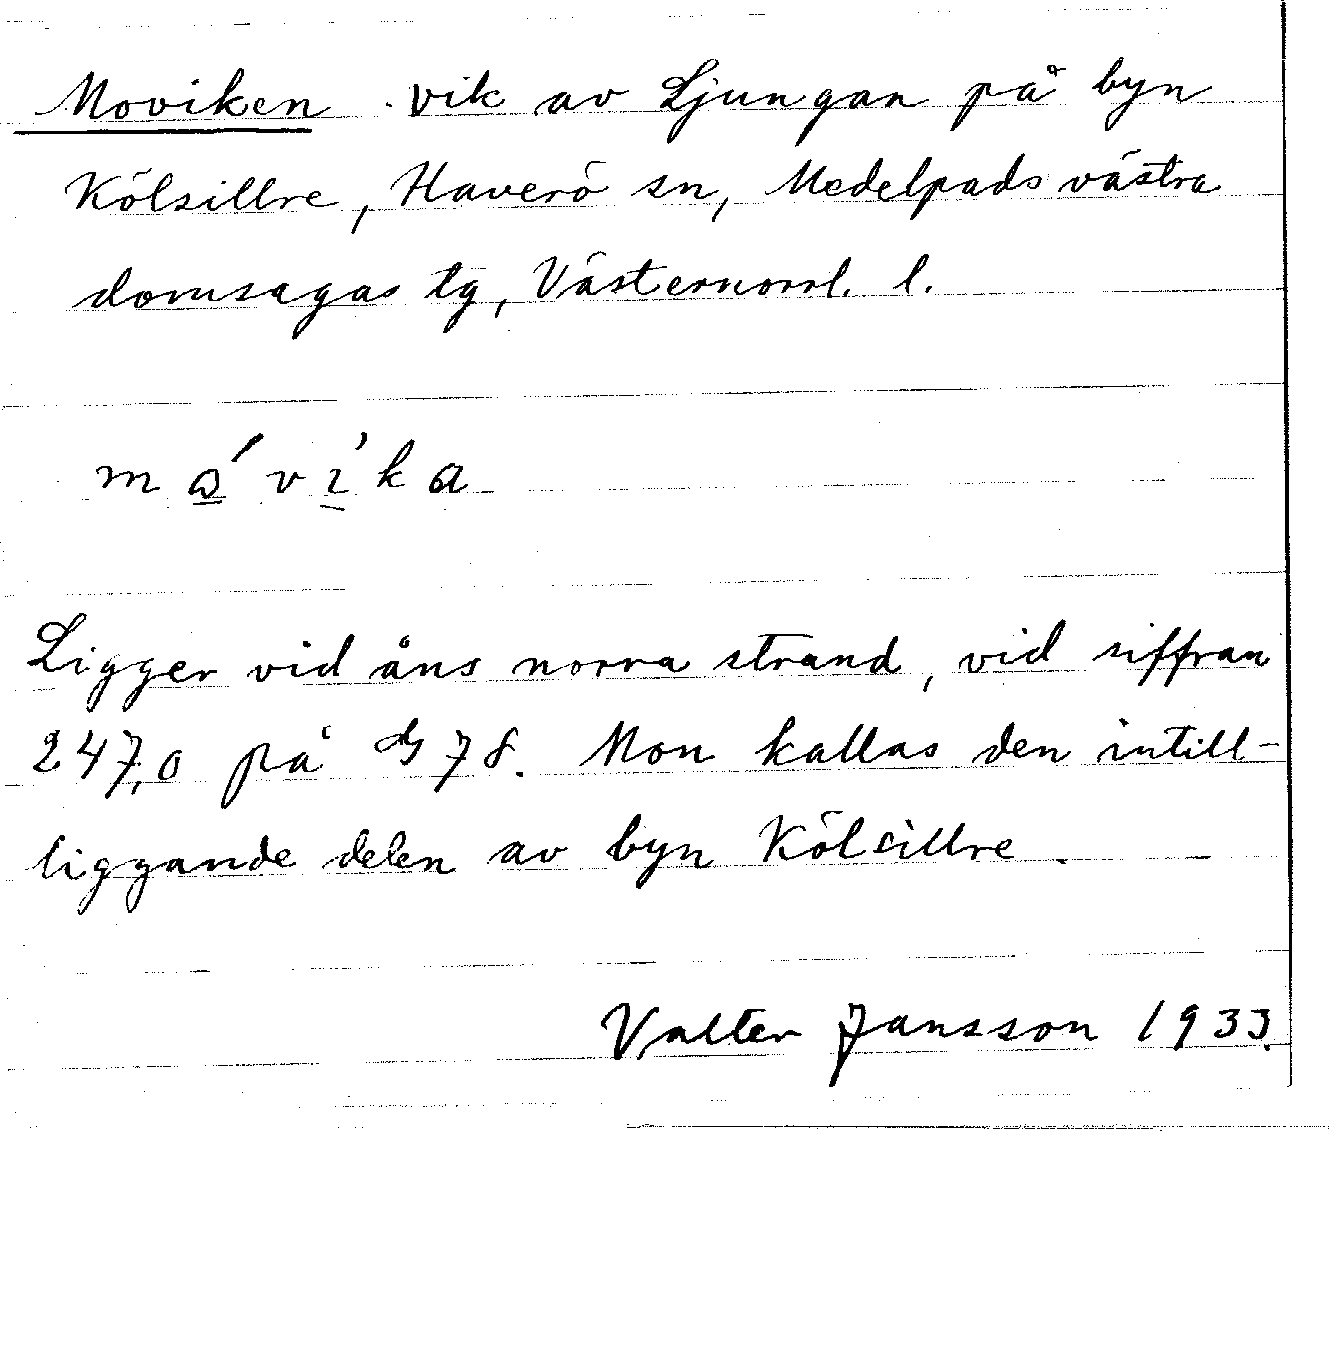 Moviken vik av Ljungan på byn
Kölsillre, Haverö sn, Medelpads västra
domsagas tg, Västernorrl. l.
Ligger vid åns norra strand, vid siffran
247,0 på 78. Mon kallas den intill-
liggande delen av byn Kölsillre.
Valter Jansson 1933.